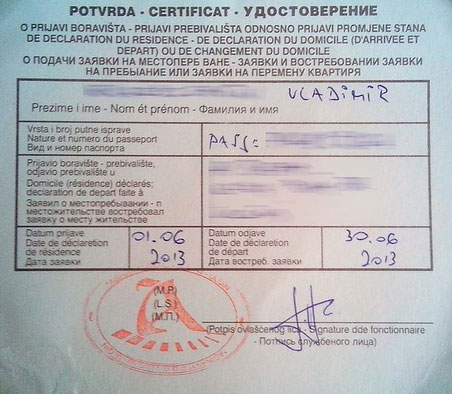 POTVRDA - CERTIFICAT - УДОСТОВЕРЕНИЕ
O PRIJAVI BORAVIŠTA - PRIJAVI PREBIVALIŠTA ODNOSNO PRIJAVI PROMJENE STANA
DE DECLARATION DU RESIDENCE - DE DECLARATION DU DOMICILE (D'ARRIVEE ET
DEPART) OU DE CHANGEMENT DU DOMICILE
О ПОДАЧИ ЗАЯВКИ НА МЕСТОПЕРЬ ВАНЕ - ЗАЯВКИ И ВОСТРЕБОВАНИИ ЗАЯВКИ
НА ПРЕБЫАНИЕ ИЛИ ЗАЯВКИ НА ПЕРЕМЕНУ КВАРТИРЯ
VLADIMIR
Prezime i ime - Nom ét prénom - Фамилия и имя
Vrsta i broj putne isprave
Nature et numero du passeport
Вид и номер паспорта
PASS:
Prijavio boravište - prebivalište,
odjavio prebivalište u
Domicile (résidence) déclarés;
declaration de depart faite à
Заявил о местопребывании - п
местожительстве востребовал
заявку о месту жительстве
Datum prijave
Date de déclaration
de résidence
Дата заявки
01.06
2013
Datum odjave
Date de déclaration
de départ
Дата востреб. заявки
30.06
2013
(M.P.)
(L.S.)
(М.П.)
(Potpis ovlašćenog lica - Signature dde fonctionnaire
- Потнись службеного лица)